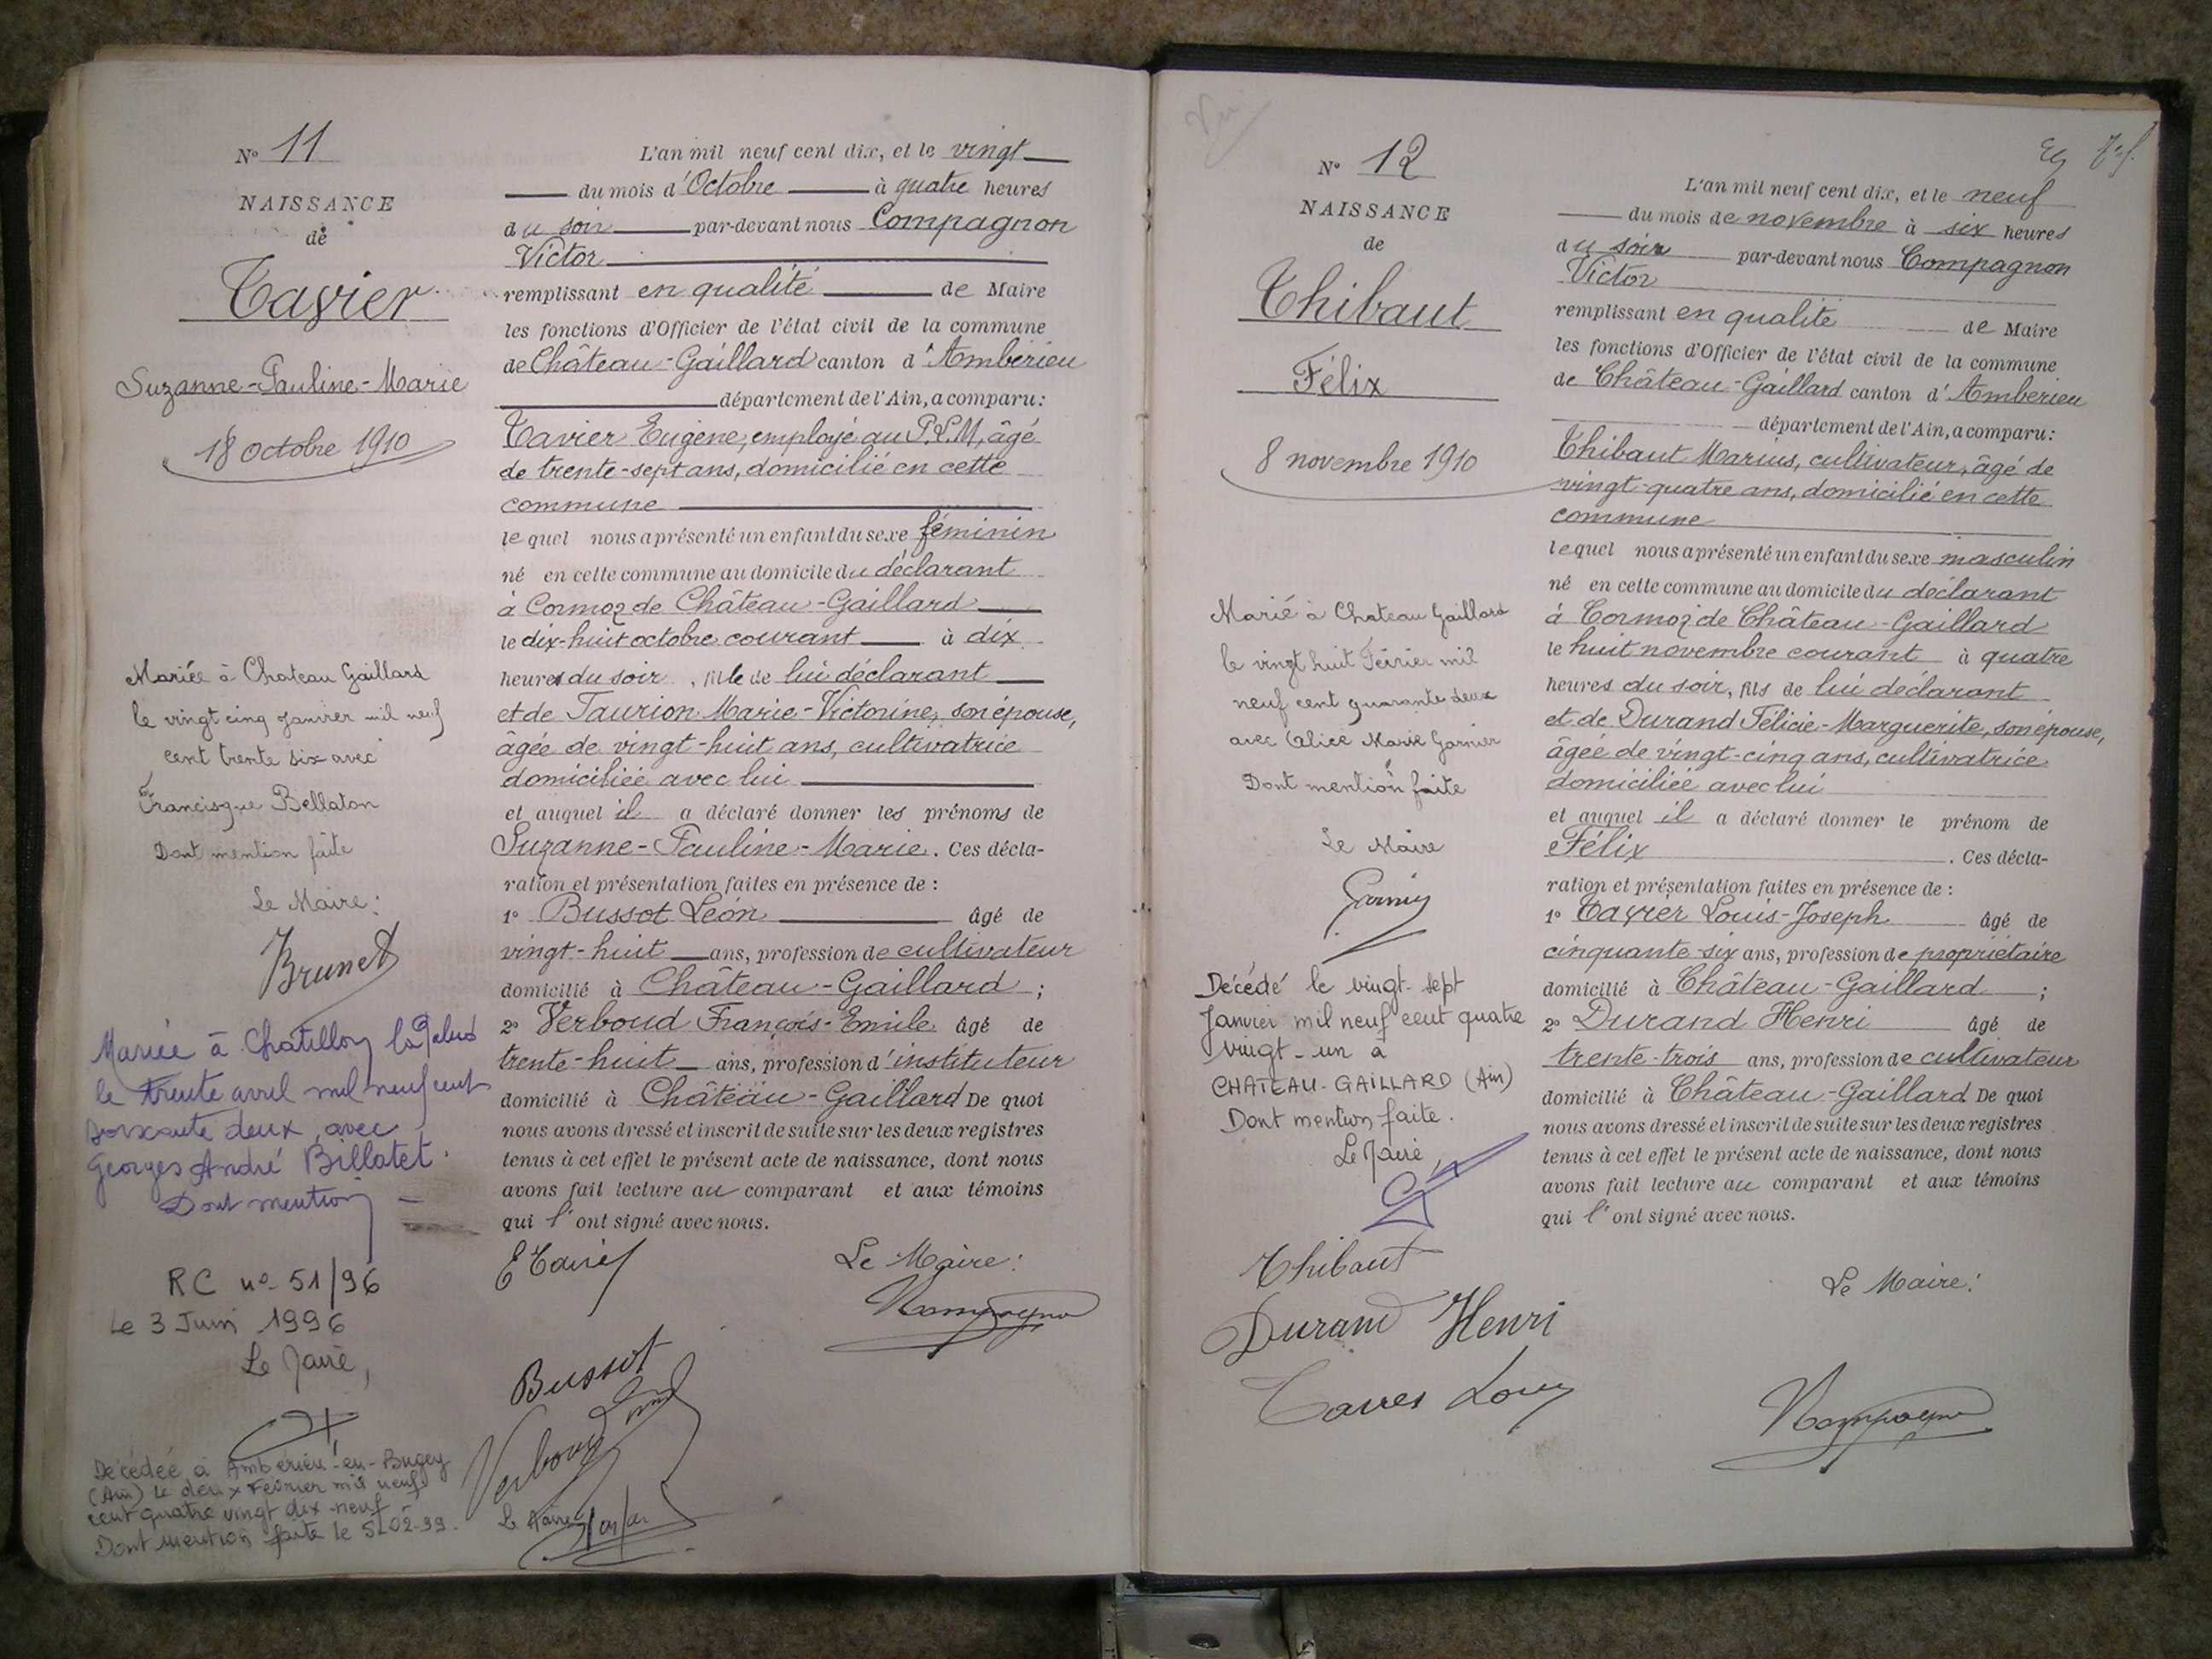 N° 11
NAISSANCE
de
Tavier
Suzanne-Pauline-Marie
18 octobre 1910
Mariée à Chateau Gaillard
le vingt cinq janvier mil neuf
cent trente six avec
Francisque Bellaton
Dont mention faite
Le Maire:
Brunet
Mariée à Chatillon la Palud
le trente avril mil neuf cent
soixante deux, avec
Georges André Billotet.
Dont mention
RC n° 51/96
Le 3 Juin 1996
Le Maire,
Décédée à Ambérieu-en-Bugey
(Ain) le deux Février mil neuf
cent quatre vingt dix-neuf
Dont mention faite le 5-02-99.
L'an mil neuf cent dix, et le vingt
du mois d'Octobre à quatre heures
du soir par-devant nous Compagnon
Victor
remplissant en qualité de Maire
les fonctions d'Officier de l'état civil de la commune
de Château-Gaillard canton d'Ambérieu
département de l'Ain, a comparu:
Tavier Eugène, employé au P.L.M, âgé
de trente-sept ans, domicilié en cette
commune
lequel nous a présenté un enfant du sexe féminin
né en cette commune au domicile du déclarant
à Cormoz de Château-Gaillard
le dix-huit octobre courant à dix
heures du soir, fille de lui déclarant
et de Taurion Marie-Victorine, son épouse,
âgée de vingt-huit ans, cultivatrice
domiciliée avec lui
et auquel il a déclaré donner les prénoms de
Suzanne-Pauline-Marie. Ces décla-
ration et présentation faites en présence de :
1° Bussot Léon âgé de
vingt-huit ans, profession de cultivateur
domicilié à Château-Gaillard ;
2° Verboud François-Emile âgé de
trente-huit ans, profession d'instituteur
domicilié à Château-Gaillard De quoi
nous avons dressé et inscrit de suite sur les deux registres
tenus à cet effet le présent acte de naissance, dont nous
avons fait lecture au comparant et aux témoins
qui l'ont signé avec nous.
E Tavier
Le Maire:
Compagnon
Bussot
Verboud
Le Maire
N° 12
NAISSANCE
de
Thibaut
Félix
8 novembre 1910
Marié à Chateau Gaillard
le vingt huit Février mil
neuf cent quarante deux
avec Alice Marie Garnier
Dont mention faite
Le Maire
Décédé le vingt-sept
Janvier mil neuf cent quatre
vingt-un à
CHATEAU-GAILLARD (Ain)
Dont mention faite.
Le Maire,
L'an mil neuf cent dix, et le neuf
du mois de novembre à six heures
du soir par-devant nous Compagnon
Victor
remplissant en qualité de Maire
les fonctions d'Officier de l'état civil de la commune
de Château-Gaillard canton d'Ambérieu
département de l'Ain, a comparu:
Thibaut Marius, cultivateur, âgé de
vingt-quatre ans, domicilié en cette
commune
lequel nous a présenté un enfant du sexe masculin
né en cette commune au domicile du déclarant
à Cormoz de Château-Gaillard
le huit novembre courant à quatre
heures du soir, fils de lui déclarant
et de Durand Félicie-Marguerite, son épouse,
âgée de vingt-cinq ans, cultivatrice
domiciliée avec lui
et auquel il a déclaré donner le prénom de
Félix. Ces décla-
ration et présentation faites en présence de :
1° Tavier Louis-Joseph âgé de
cinquante-six ans, profession de propriétaire
domicilié à Château-Gaillard ;
2° Durand Henri âgé de
trente-trois ans, profession de cultivateur
domicilié à Château-Gaillard De quoi
nous avons dressé et inscrit de suite sur les deux registres
tenus à cet effet le présent acte de naissance, dont nous
avons fait lecture au comparant et aux témoins
qui l'ont signé avec nous.
Thibaut
Le Maire:
Durand Henri
Compagnon